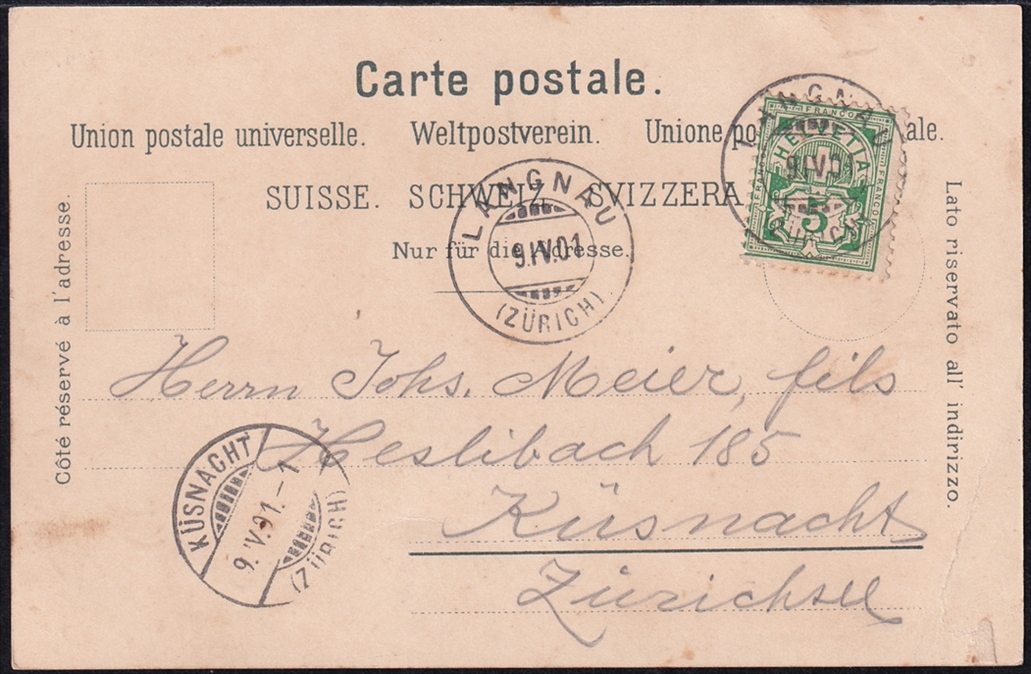 Carte postale.
Union postale universelle. Weltpostverein. Unione po ale.
SUISSE. SCHWEIZ. SVIZZERA
Nur für die Adresse.
Côté réservé à l'adresse.
Lato riservato all' indirizzo.
LANGNAU
9.IV.01
(ZÜRICH)
LANGNAU
9.IV.01
FRANCO
HELVETIA
FRANCO
FRANCO
5
Herrn Johs. Meier, fils
Heslibach 185
Küsnacht
Zürichsee
KÜSNACHT
(ZÜRICH)